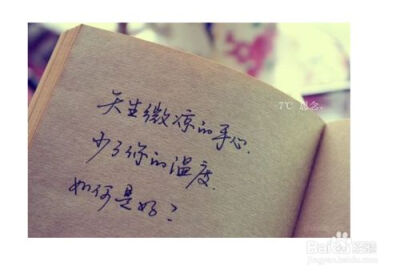 天生微凉的手心.
少了你的温度.
如何是好?
7℃ 思念。
Baidu经验
jingyan.baidu.com